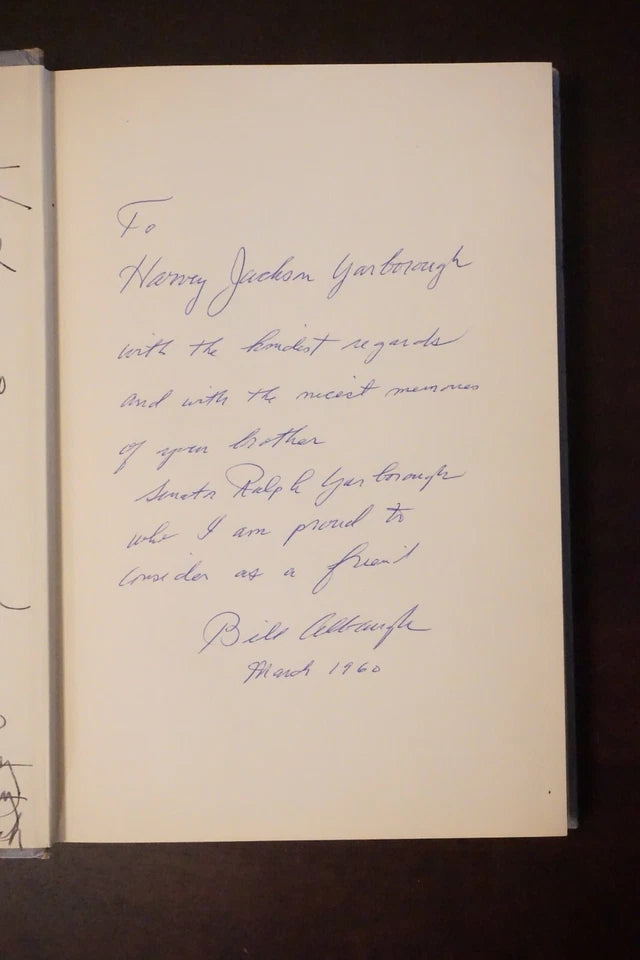 To
Harvey Jackson Yarborough
with the kindest regards
and with the nicest memories
of your brother
Senator Ralph Yarborough
who I am proud to
consider as a friend
Bill
March 1960